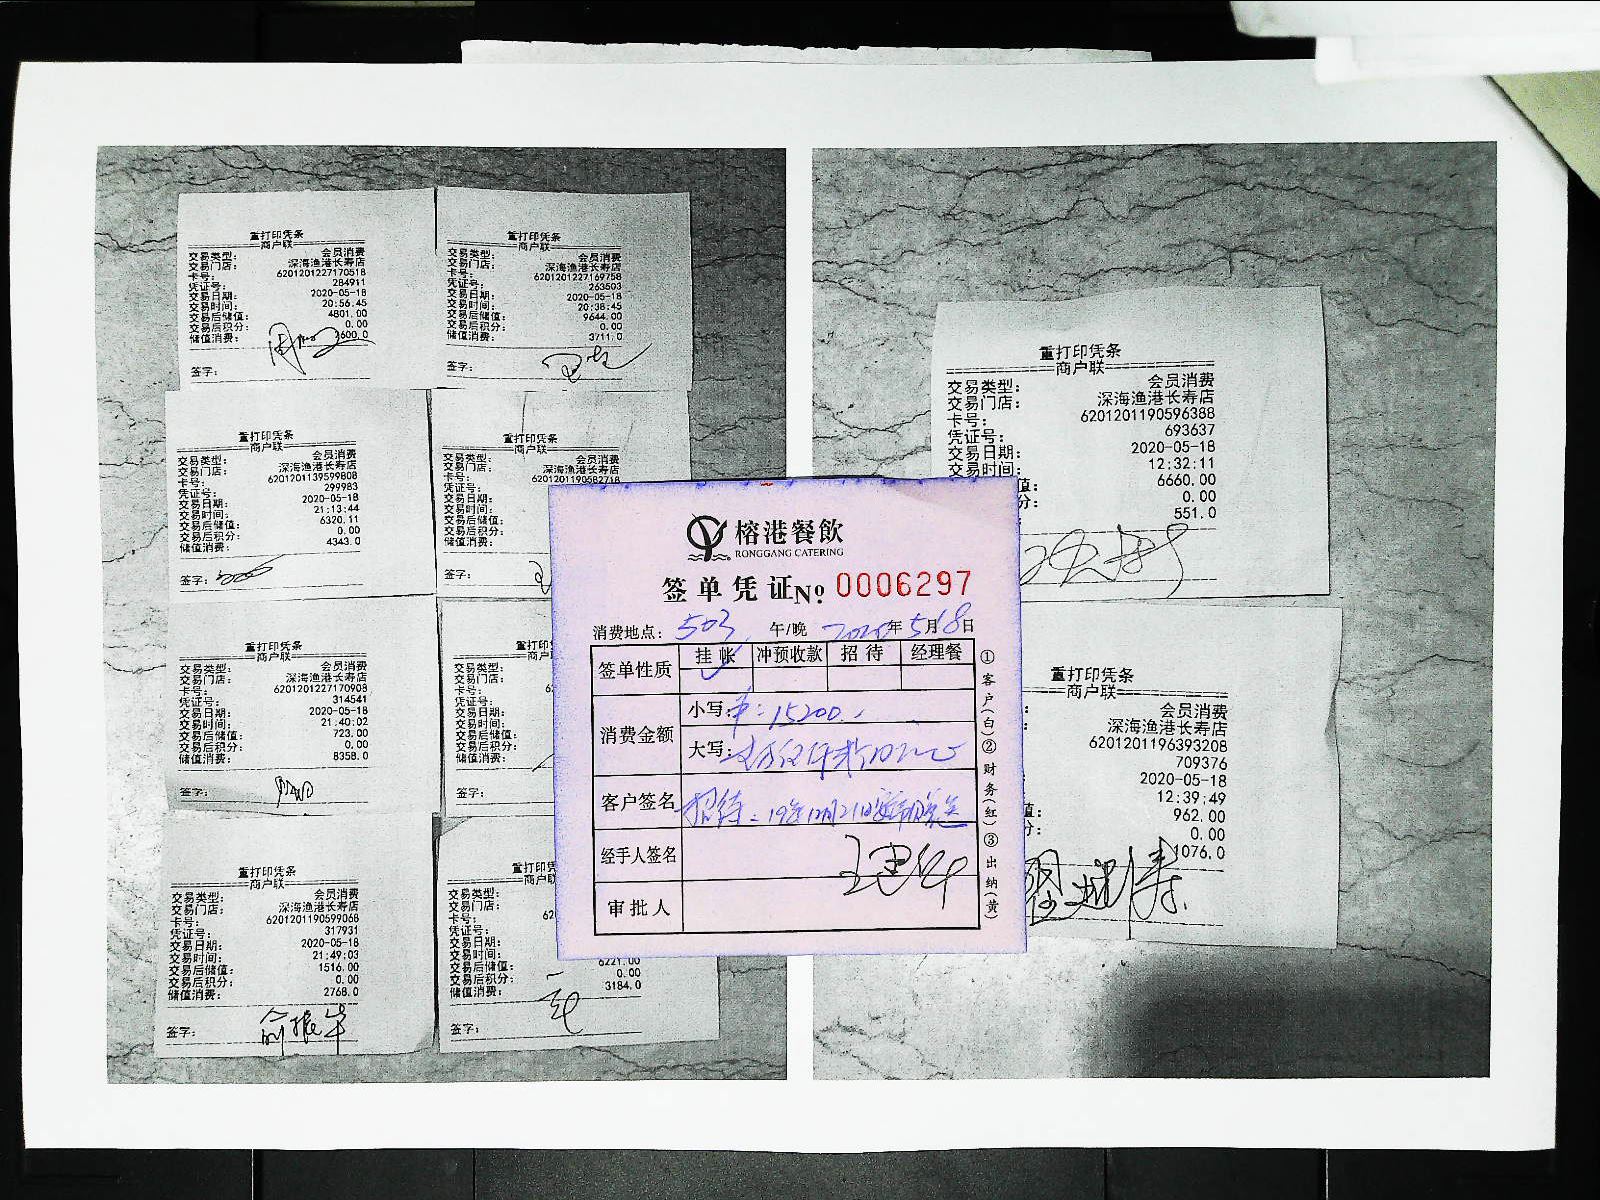 重打印凭条
商户联
交易类型： 会员消费
交易门店： 深海渔港长寿店
卡号： 6201201227170518
凭证号： 284911
交易日期： 2020-05-18
交易时间： 20:56:45
交易后储值： 4801.00
交易后积分： 0.00
储值消费： 3600.0
签字：
重打印凭条
商户联
交易类型： 会员消费
交易门店： 深海渔港长寿店
卡号： 6201201227169758
凭证号： 263503
交易日期： 2020-05-18
交易时间： 20:38:45
交易后储值： 9644.00
交易后积分： 0.00
储值消费： 3711.0
签字：
重打印凭条
商户联
交易类型： 会员消费
交易门店： 深海渔港长寿店
卡号： 6201201139599808
凭证号： 299983
交易日期： 2020-05-18
交易时间： 21:13:44
交易后储值： 6320.11
交易后积分： 0.00
储值消费： 4343.0
签字：
重打印凭条
商户联
交易类型： 会员消费
交易门店： 深海渔港长寿店
卡号： 6201201190582718
凭证号：
交易日期：
交易时间：
交易后储值：
交易后积分：
储值消费：
签字：
重打印凭条
商户联
交易类型： 会员消费
交易门店： 深海渔港长寿店
卡号： 6201201227170908
凭证号： 314541
交易日期： 2020-05-18
交易时间： 21:40:02
交易后储值： 723.00
交易后积分： 0.00
储值消费： 8358.0
签字：
重打
商户
交易类型：
交易门店：
卡号： 62
凭证号：
交易日期：
交易时间：
交易后储值：
交易后积分：
储值消费：
签字：
重打印凭条
商户联
交易类型： 会员消费
交易门店： 深海渔港长寿店
卡号： 6201201190599068
凭证号： 317931
交易日期： 2020-05-18
交易时间： 21:49:03
交易后储值： 1516.00
交易后积分： 0.00
储值消费： 2768.0
签字： 俞振华
重打印
商户
交易类型：
交易门店：
卡号： 62
凭证号：
交易日期：
交易时间：
交易后储值： 6221.00
交易后积分： 0.00
储值消费： 3184.0
签字：
榕港餐飲
RONGGANG CATERING
签单凭证№ 0006297
消费地点： 503 午/晚 2020年5月18日
签单性质 挂帐 冲预收款 招待 经理餐
消费金额 小写： 15200
大写：
客户签名 招待：19年12月21日
经手人签名
审批人
①客户(白)②财务(红)③出纳(黄)
重打印凭条
商户联
交易类型： 会员消费
交易门店： 深海渔港长寿店
卡号： 6201201190596388
凭证号： 693637
交易日期： 2020-05-18
交易时间： 12:32:11
值： 6660.00
分： 0.00
551.0
重打印凭条
商户联
会员消费
深海渔港长寿店
6201201196393208
709376
2020-05-18
12:39:49
值： 962.00
0.00
1076.0